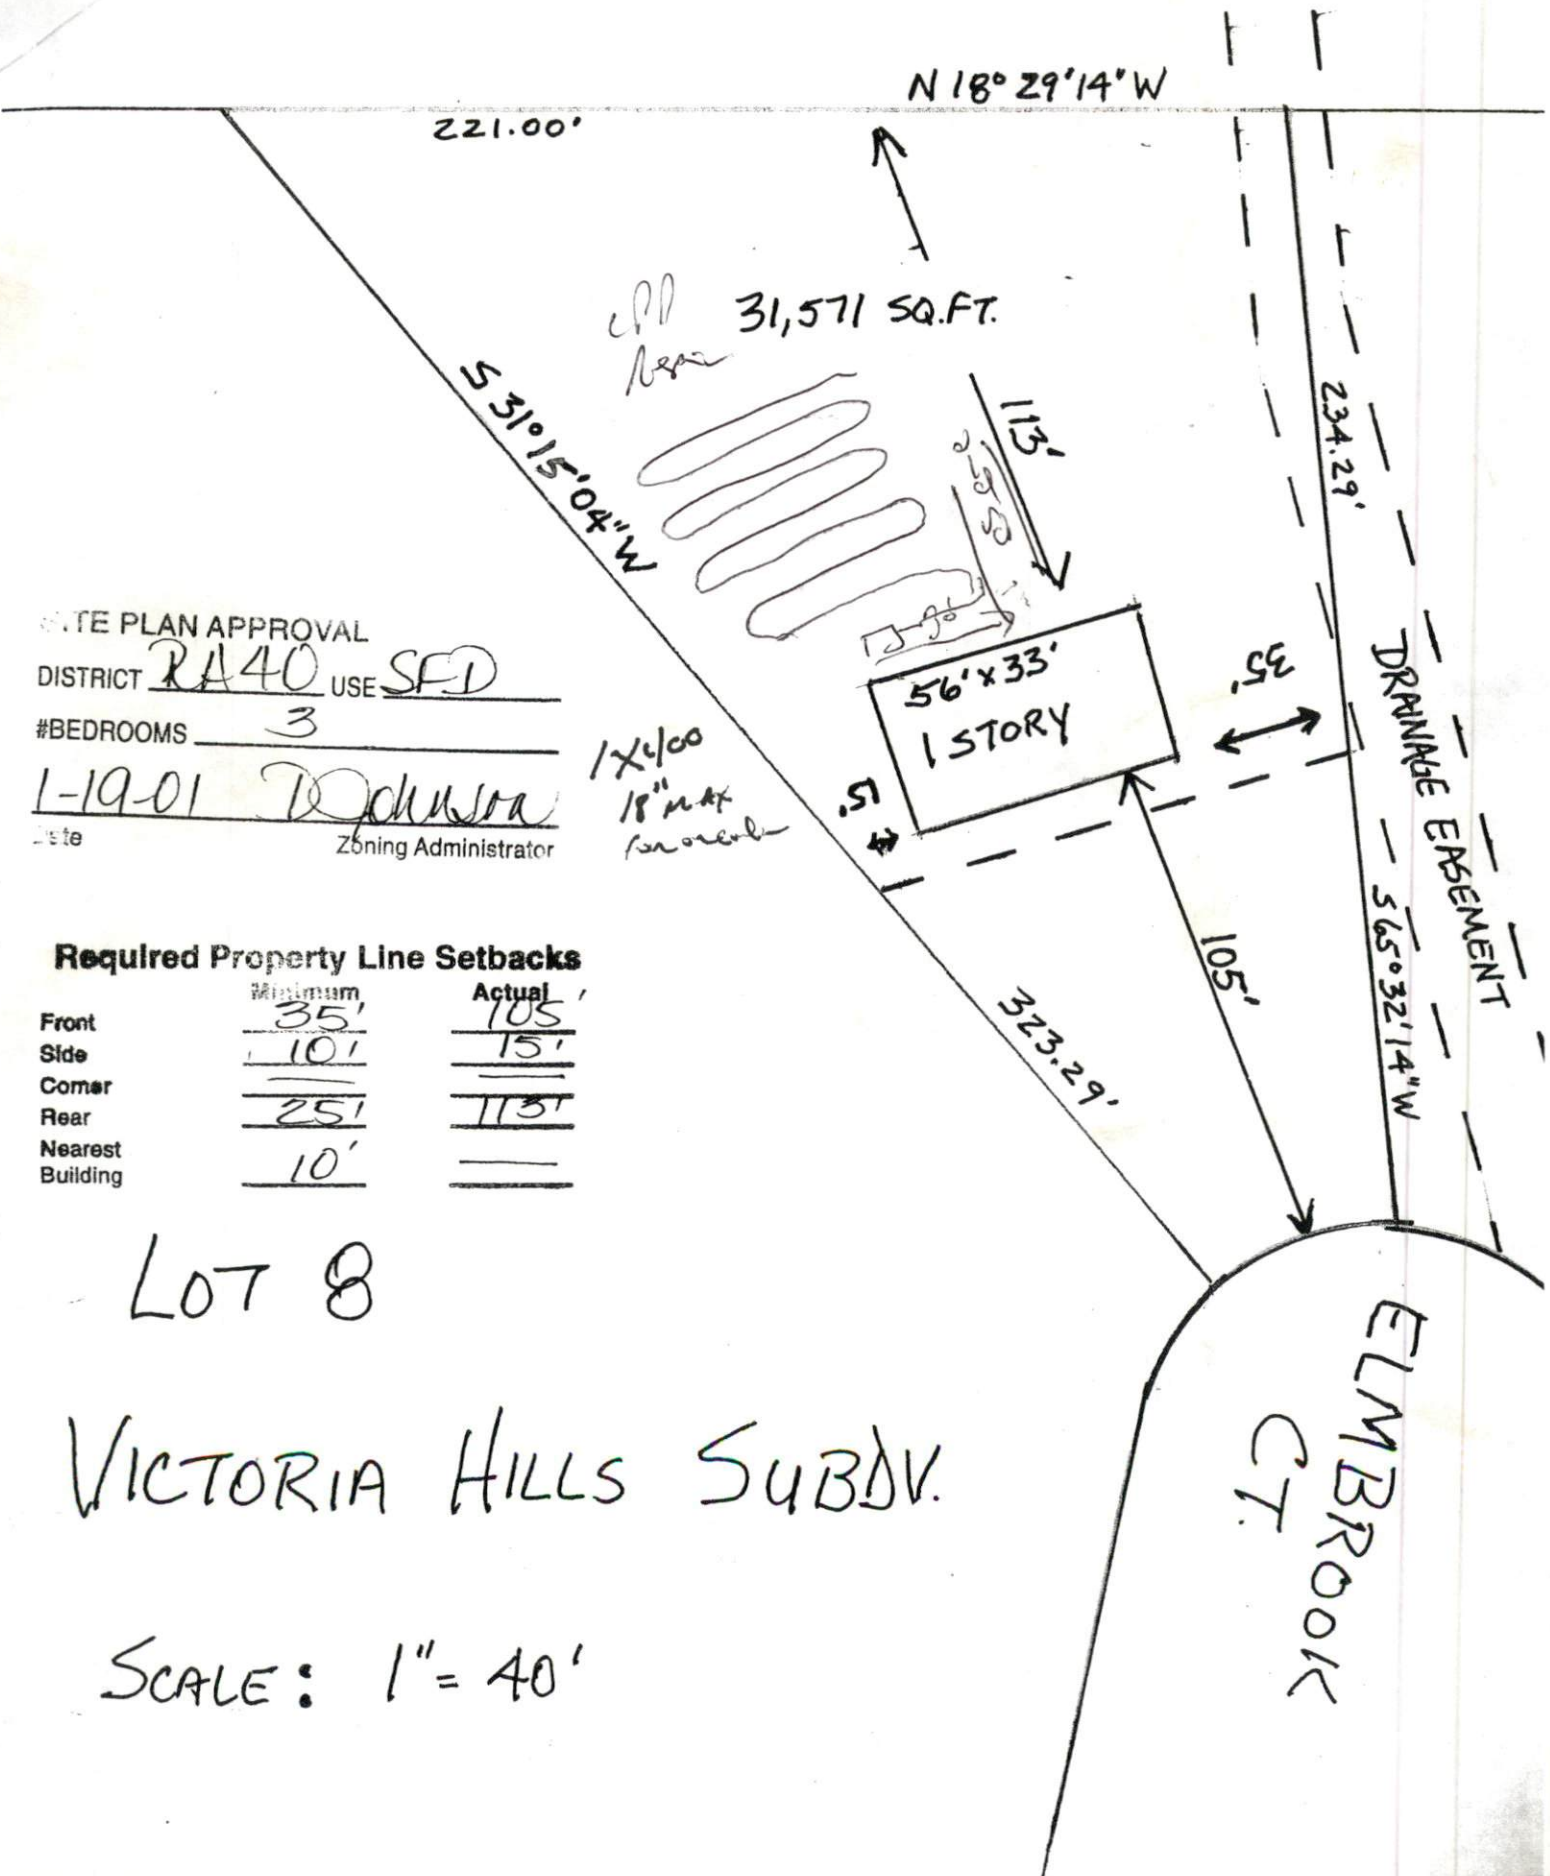 N 18° 29' 14" W
221.00'
31,571 SQ.FT.
S 31° 15' 04" W
113'
234.29'
56' x 33'
1 STORY
35'
15'
DRAINAGE EASEMENT
S 65° 32' 14" W
105'
323.29'
ELMBROOK
CT.
TE PLAN APPROVAL
DISTRICT RA40 USE SFD
#BEDROOMS 3
1-19-01 D Johnson
Zoning Administrator
1X400
18" MAX
Required Property Line Setbacks
Minimum Actual
Front 35' 105'
Side 10' 15'
Corner
Rear 25' 113'
Nearest
Building 10'
LOT 8
VICTORIA HILLS SUBDV.
SCALE: 1" = 40'